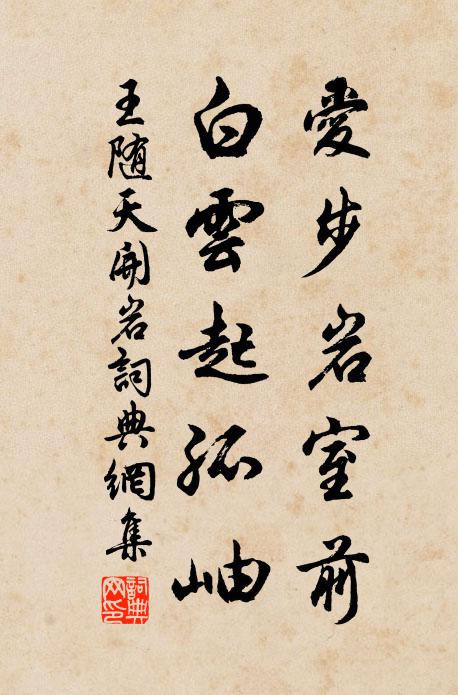 愛步岩室前
白雲起孤岫
王随天開岩詞典網集
詞典网印